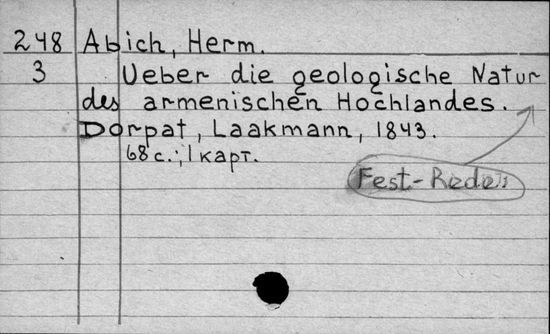 248 Abich, Herm.
3 Ueber die geologische Natur
des armenischen Hochlandes.
Dorpat, Laakmann, 1843.
68 с.; 1 карт.
Fest-Rede